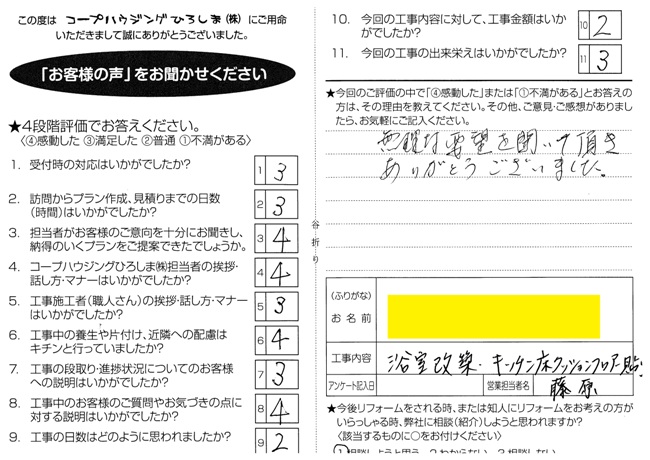 この度は コープハウジングひろしま(株) にご用命
いただきまして誠にありがとうございました。
「お客様の声」をお聞かせください
★4段階評価でお答えください。
〈④感動した ③満足した ②普通 ①不満がある〉
1. 受付時の対応はいかがでしたか? 1 3
2. 訪問からプラン作成、見積りまでの日数
(時間)はいかがでしたか? 2 3
3. 担当者がお客様のご意向を十分にお聞きし、
納得のいくプランをご提案できたでしょうか。 3 4
4. コープハウジングひろしま㈱担当者の挨拶・
話し方・マナーはいかがでしたか? 4 4
5. 工事施工者(職人さん)の挨拶・話し方・マナー
はいかがでしたか? 5 3
6. 工事中の養生や片付け、近隣への配慮は
キチンと行っていましたか? 6 4
7. 工事の段取り・進捗状況についてのお客様
への説明はいかがでしたか? 7 3
8. 工事中のお客様のご質問やお気づきの点に
対する説明はいかがでしたか? 8 4
9. 工事の日数はどのように思われましたか? 9 2
谷折り
10. 今回の工事内容に対して、工事金額はいか
がでしたか? 10 2
11. 今回の工事の出来栄えはいかがでしたか? 11 3
★今回のご評価の中で「④感動した」または「①不満がある」とお答えの
方は、その理由を教えてください。その他、ご意見・ご感想がありまし
たら、お気軽にご記入ください。
無理な要望を聞いて頂き
ありがとうございました。
(ふりがな)
お名前
工事内容 浴室改築・キッチン床クッションフロアー貼
アンケート記入日 営業担当者名 藤原
★今後リフォームをされる時、または知人にリフォームをお考えの方が
いらっしゃる時、弊社に相談(紹介)しようと思われますか?
〈該当するものに○をお付けください〉
1.相談しようと思う 2.わからない 3.相談しない